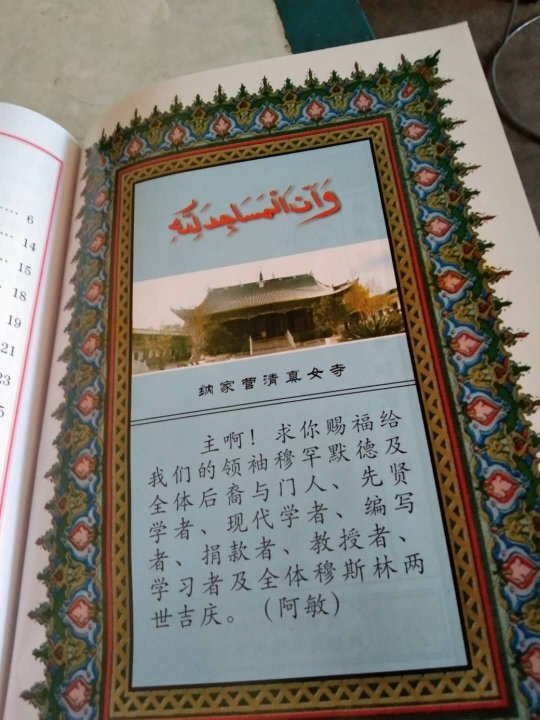 ..... 6
... 14
.... 15
18
19
21
23
5
وَأَنَّ الْمَسَاجِدَ لِلَّهِ
纳家营清真女寺
主啊！求你赐福给
我们的领袖穆罕默德及
全体后裔与门人、先贤
学者、现代学者、编写
者、捐款者、教授者、
学习者及全体穆斯林两
世吉庆。（阿敏）